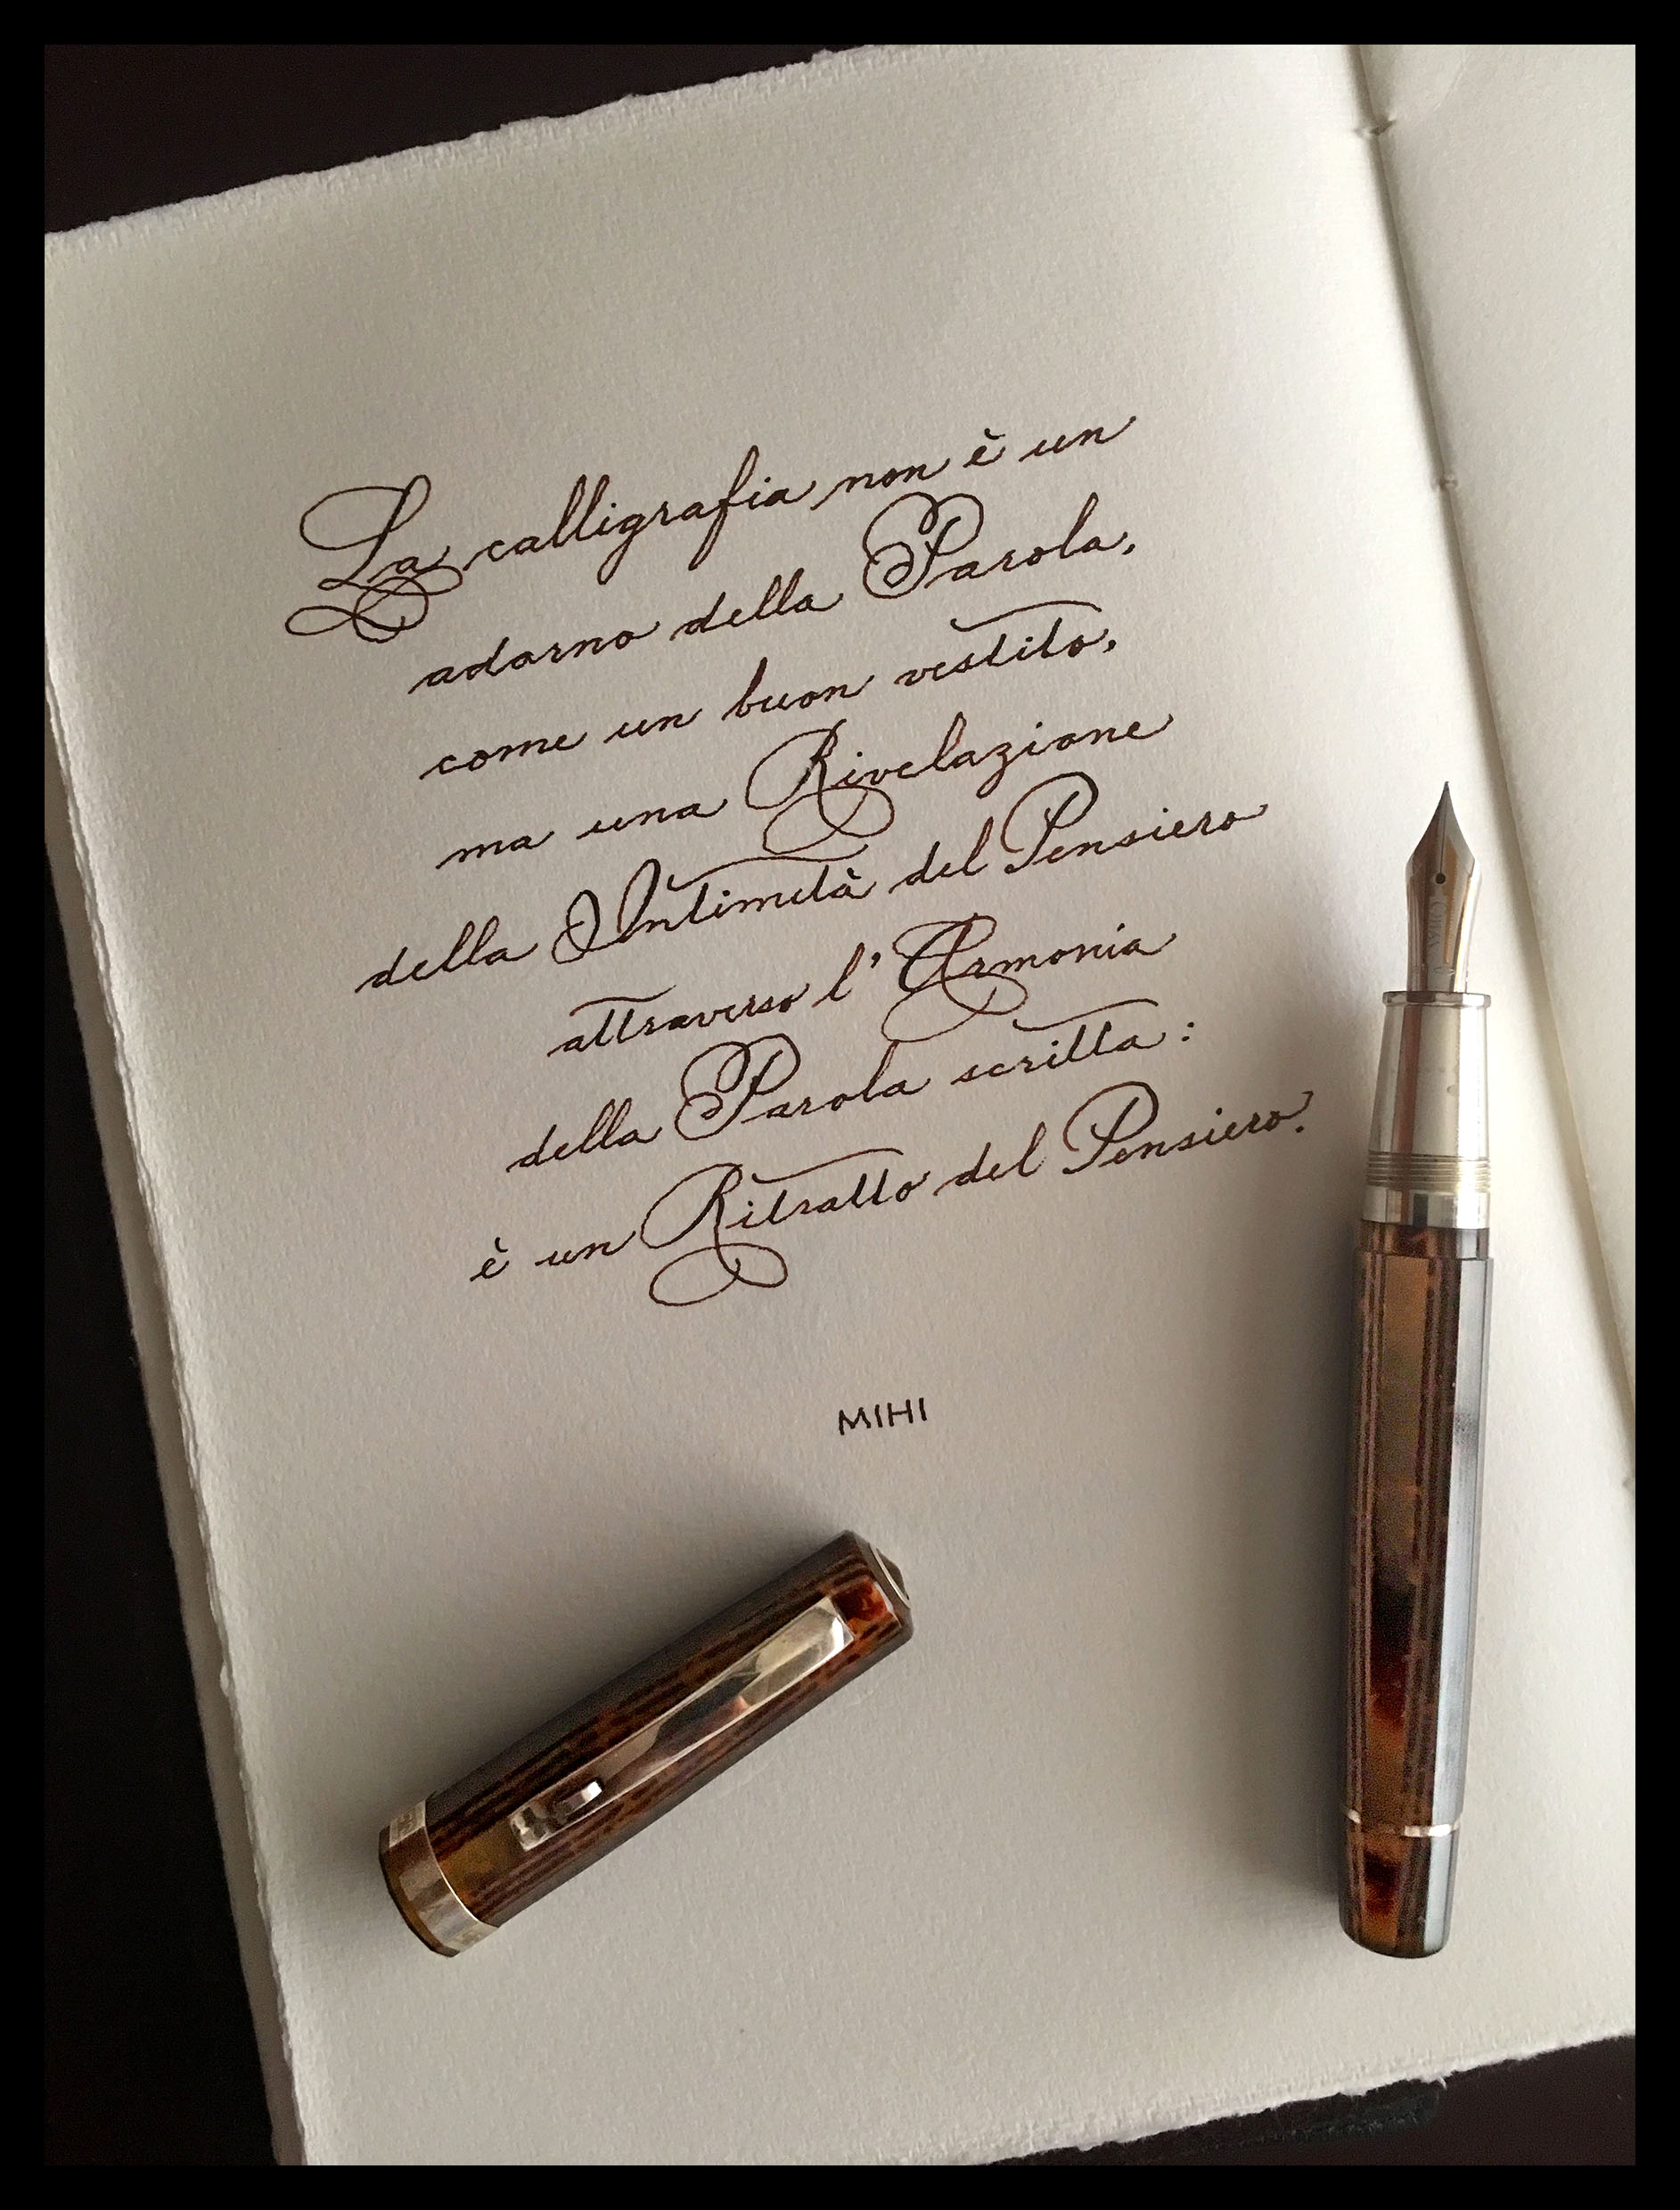 La calligrafia non è un
adorno della Parola,
come un buon vestito,
ma una Rivelazione
della Intimità del Pensiero
attraverso l'Armonia
della Parola scritta:
è un Ritratto del Pensiero.
MIHI